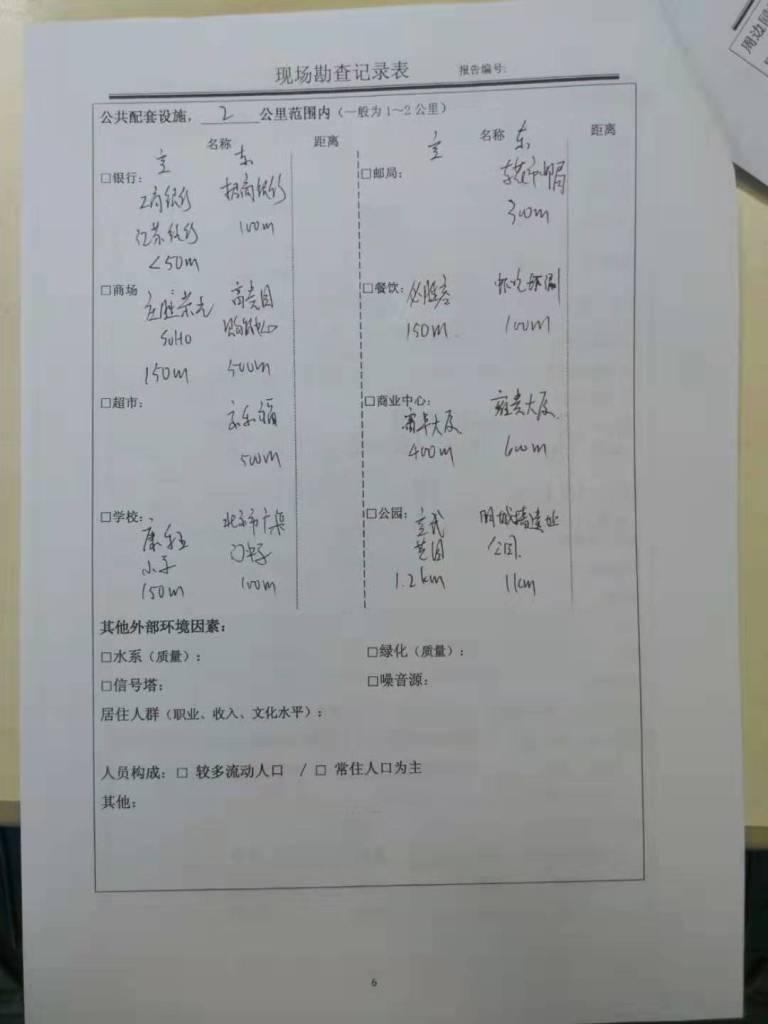 周边
现场勘查记录表 报告编号:
公共配套设施， 2 公里范围内（一般为 1～2 公里）
名称 距离 名称 距离
立 东 立 东
□银行: 工商银行 招商银行 □邮局:
江苏银行 100m 300m
<50m
□商场 荣光 □餐饮:
SOHO 购物中心 150m 100m
150m 500m
□超市: □商业中心: 大厦 大厦
500m 400m 600m
□学校: 康乐里 北京市广渠 □公园: 宣武 明城墙遗址
小学 门中学 艺园 公园
150m 100m 1.2km 1km
其他外部环境因素:
□水系（质量）: □绿化（质量）:
□信号塔: □噪音源:
居住人群（职业、收入、文化水平）:
人员构成: □ 较多流动人口 / □ 常住人口为主
其他:
6